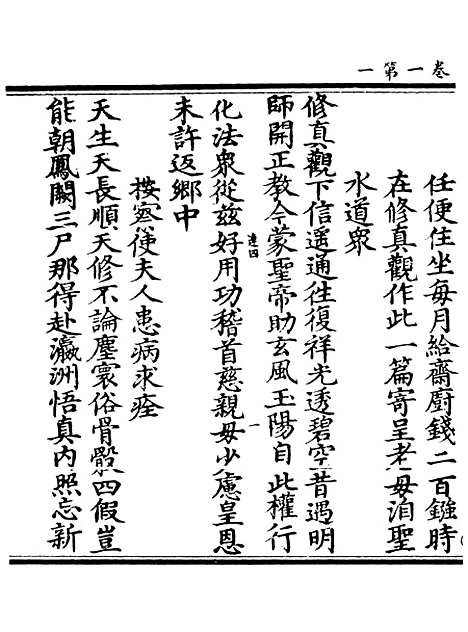 卷一第一
任便住坐每月給齋廚錢二百鏹時
在修真觀作此一篇寄呈老母洎聖
水道衆
修真觀下信遥通往復祥光透碧空昔遇明
師開正教今蒙聖帝助玄風玉陽自此權行
達四
一
化法衆從兹好用功稽首慈親毋少慮皇恩
未許返鄉中
按察使夫人患病求痊
天生天長順天修不論塵寰俗骨骰四假豈
能朝鳳闕三尸那得赴瀛洲悟真内照忘新